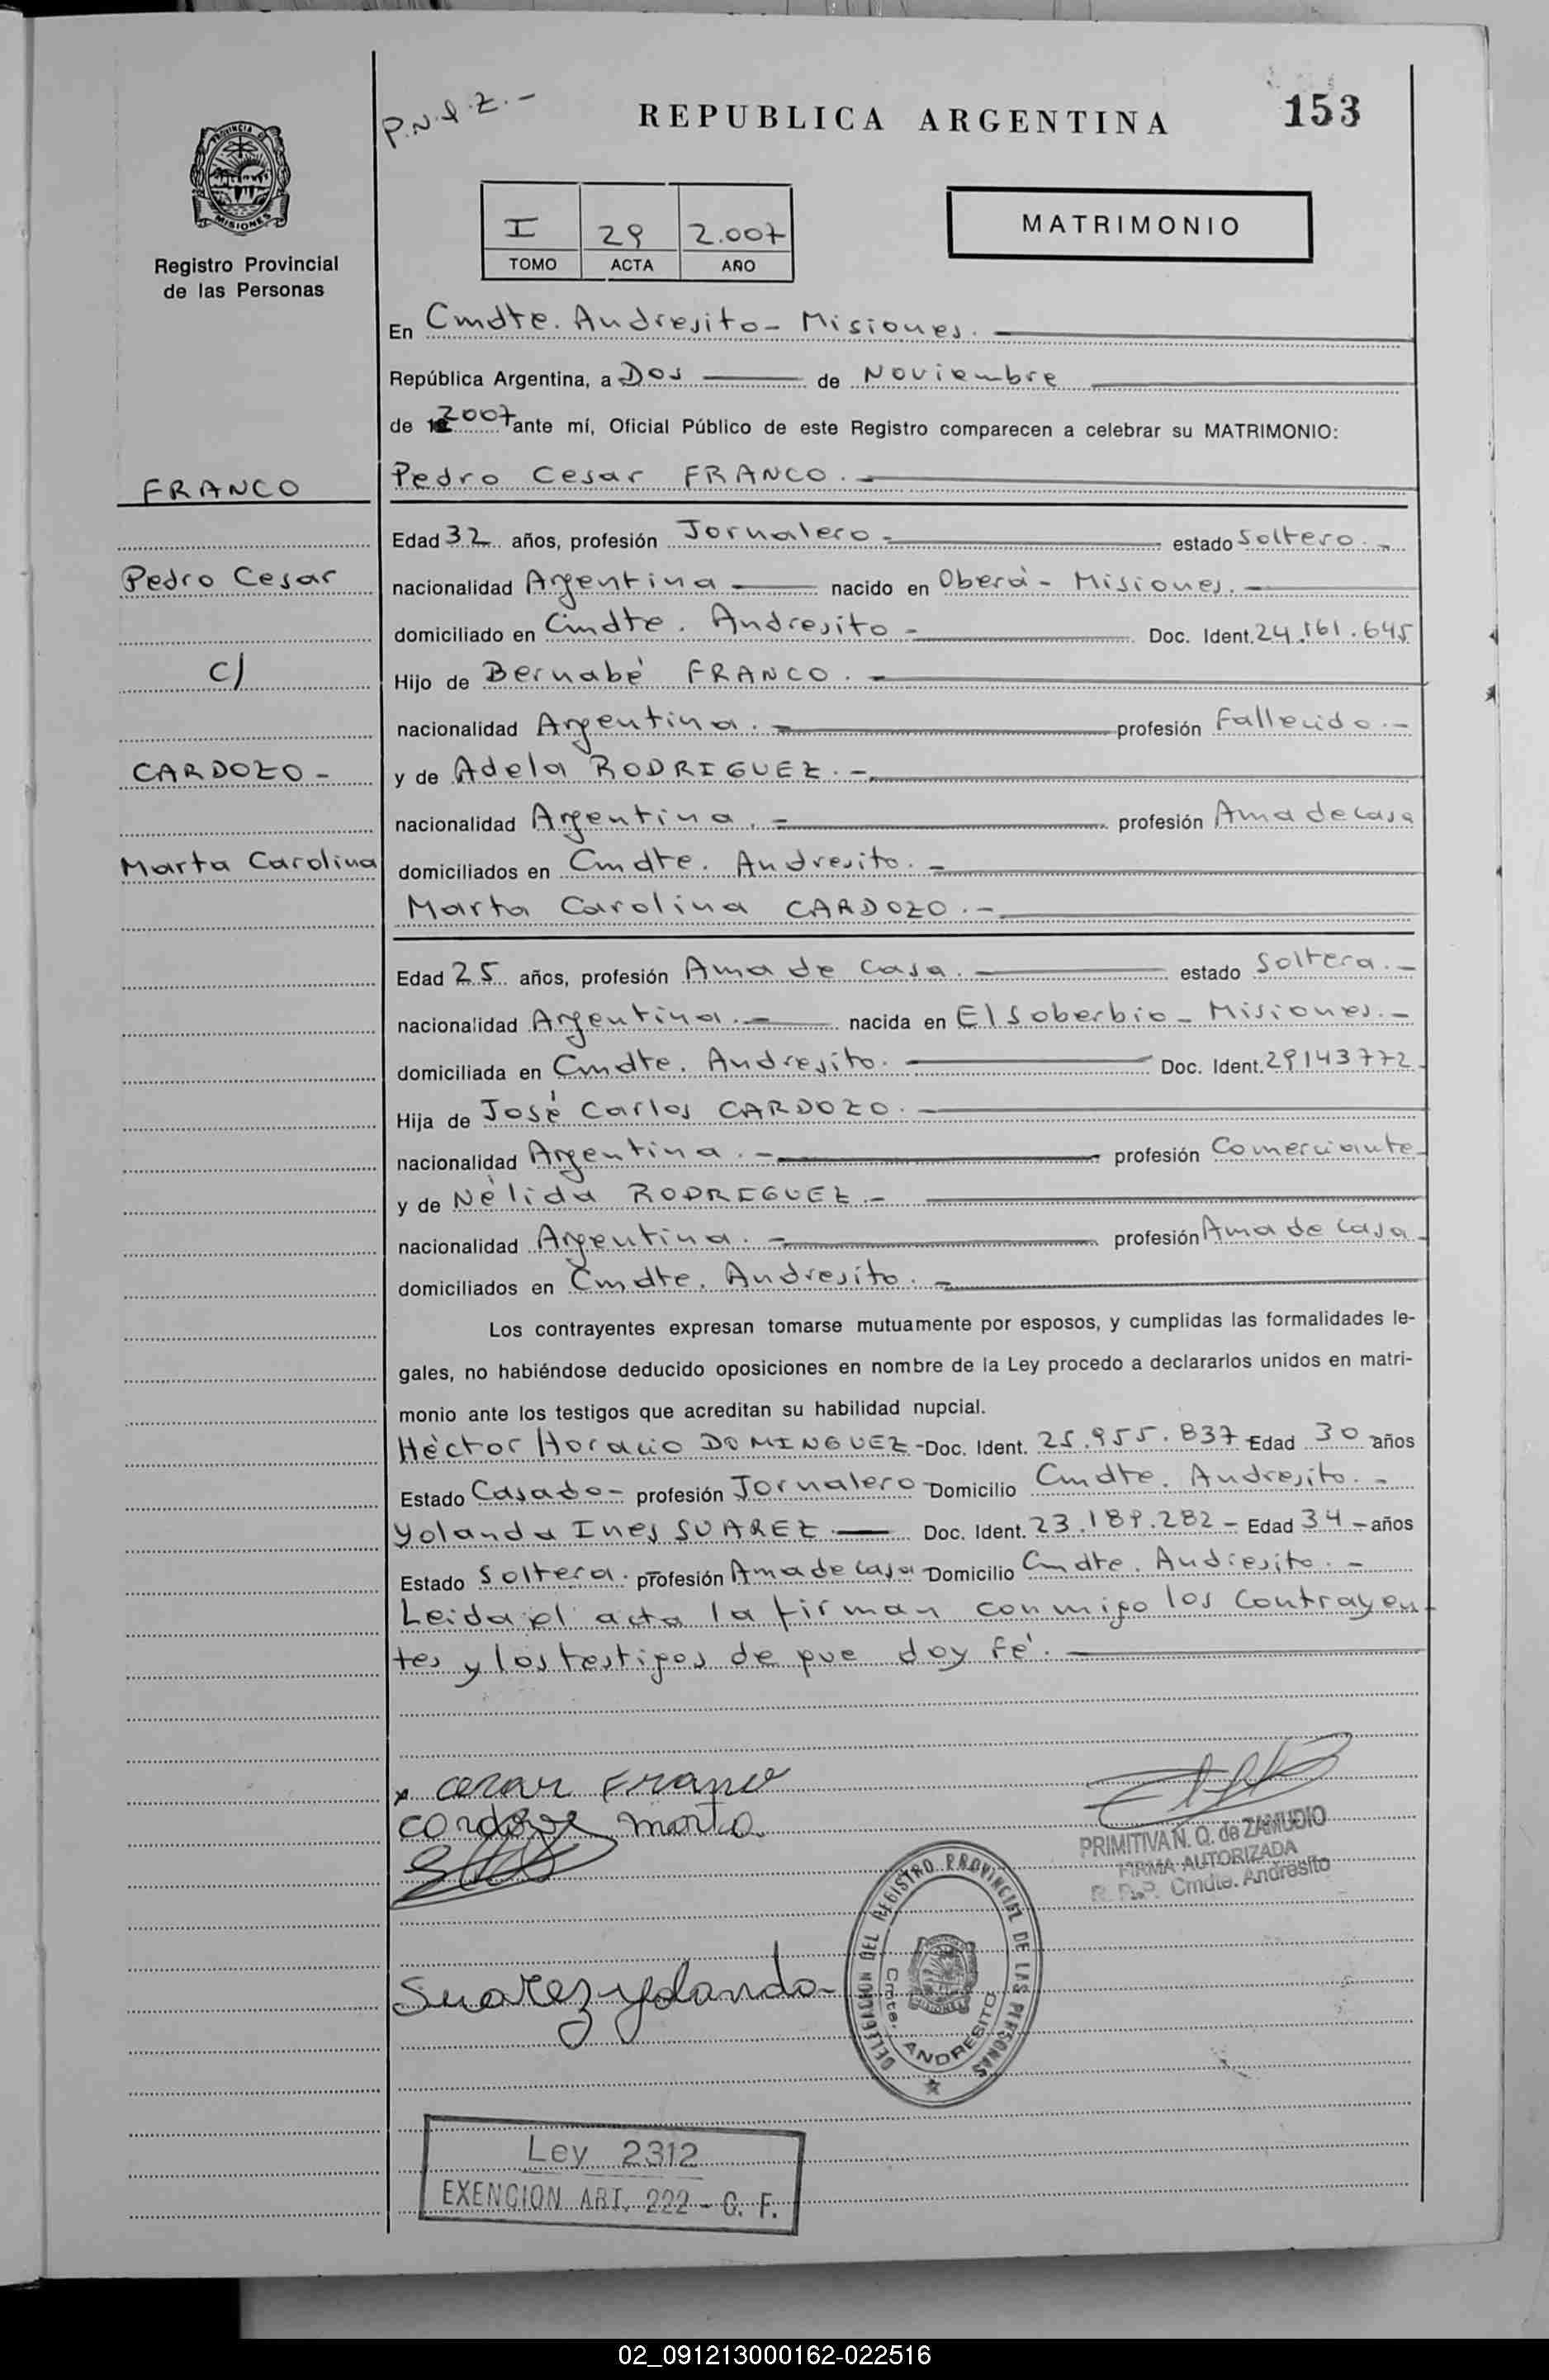 P.N.I.Z.-
REPUBLICA ARGENTINA
153
PROVINCIA DE
MISIONES
Registro Provincial
de las Personas
I 29 2.007
TOMO ACTA AÑO
MATRIMONIO
En Cmdte. Andresito - Misiones.
República Argentina, a Dos de Noviembre
de 2007 ante mí, Oficial Público de este Registro comparecen a celebrar su MATRIMONIO:
FRANCO
Pedro Cesar FRANCO.-
Edad 32 años, profesión Jornalero- estado Soltero.-
Pedro Cesar
nacionalidad Argentina nacido en Oberá - Misiones.-
domiciliado en Cmdte. Andresito- Doc. Ident. 24.161.645
c/
Hijo de Bernabé FRANCO.-
nacionalidad Argentina.- profesión Fallecido.-
CARDOZO-
y de Adela RODRIGUEZ.-
nacionalidad Argentina.- profesión Ama de casa
Marta Carolina
domiciliados en Cmdte. Andresito.-
Marta Carolina CARDOZO.-
Edad 25 años, profesión Ama de casa. estado Soltera.-
nacionalidad Argentina.- nacida en El Soberbio - Misiones.-
domiciliada en Cmdte. Andresito. Doc. Ident. 29143772
Hija de José Carlos CARDOZO.
nacionalidad Argentina.- profesión Comerciante
y de Nélida RODRIGUEZ.-
nacionalidad Argentina.- profesión Ama de casa
domiciliados en Cmdte. Andresito.-
Los contrayentes expresan tomarse mutuamente por esposos, y cumplidas las formalidades le-
gales, no habiéndose deducido oposiciones en nombre de la Ley procedo a declararlos unidos en matri-
monio ante los testigos que acreditan su habilidad nupcial.
Héctor Horacio DOMINGUEZ - Doc. Ident. 25.955.837 Edad 30 años
Estado Casado- profesión Jornalero - Domicilio Cmdte. Andresito.-
Yolanda Ines SUAREZ Doc. Ident. 23.189.282 - Edad 34 - años
Estado Soltera. profesión Ama de casa - Domicilio Cmdte. Andresito.-
Leida el acta la firman conmigo los contrayen-
tes y los testigos de que doy fé.
x cesar Franco
cardozo marta
PRIMITIVA N. Q. de ZAMUDIO
FIRMA AUTORIZADA
R. P. P. Cmdte. Andresito
suarez yolanda
DELEGACION DEL REGISTRO PROVINCIAL DE LAS PERSONAS
Cmte. ANDRESITO
MISIONES
Ley 2312
EXENCION ART. 222 - C. F.
02_091213000162-022516